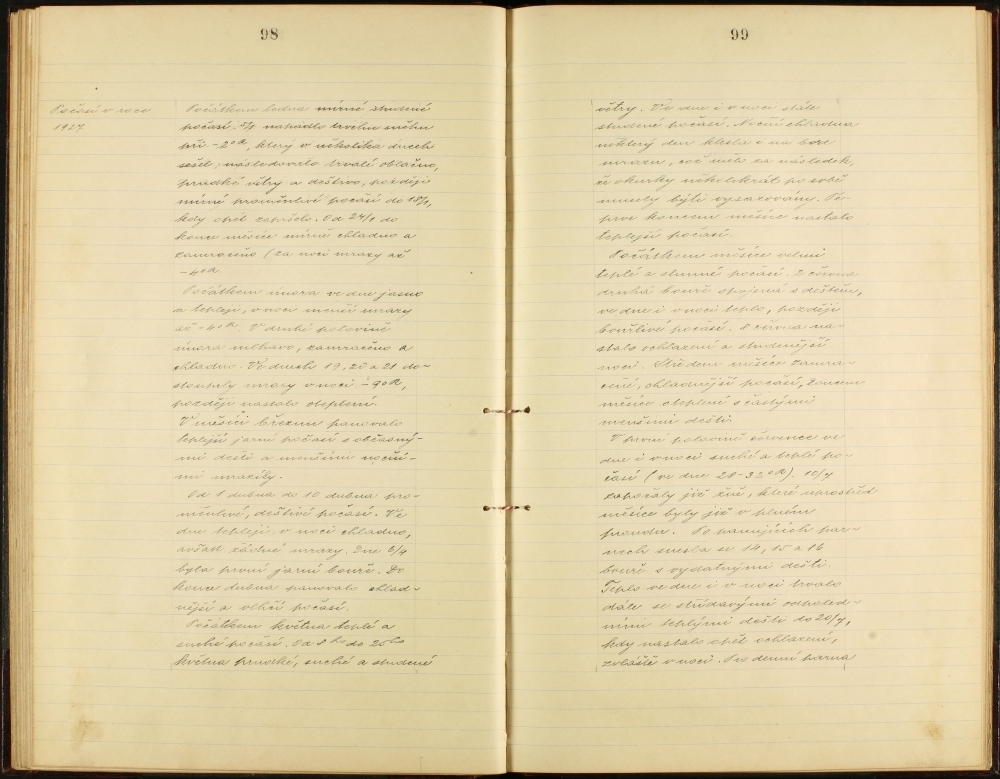 98
Počasí v roce
1927
Počátkem ledna mírné studené
počasí. 5/1 napadlo trochu sněhu
při -2°R, který v několika dnech
sešel, následovalo trvalé oblačno,
prudké větry a deštivo, později
mírné proměnlivé počasí do 18/1,
kdy opět zapršelo. Od 24/1 do
konce měsíce mírně chladno a
zamračeno (za noci mrazy až
-4°R.
Počátkem února ve dne jasno
a tepleji, v noci menší mrazy
až -4°R. V druhé polovině
února mlhavo, zamračeno a
chladno. Ve dnech 19, 20 a 21 do-
stouply mrazy v noci -9°R,
později nastalo oteplení.
V měsíci březnu panovalo
teplejší jarní počasí s občasný-
mi dešti a menšími noční-
mi mrazíky.
Od 1 dubna do 10 dubna pro-
měnlivé, deštivé počasí. Ve
dne tepleji, v noci chladno,
avšak žádné mrazy. Dne 6/4
byla první jarní bouře. Do
konce dubna panovalo chlad-
nější a vlhčí počasí.
Počátkem května teplé a
suché počasí. Od 8ho do 20ho
května prudké, suché a studené
99
větry. Ve dne i v noci stále
studené počasí. Noční chladna
některý den klesla i na bod
mrazu, což mělo za následek,
že okurky několikrát po sobě
musely býti vysazovány. Te-
prve koncem měsíce nastalo
teplejší počasí.
Počátkem měsíce velmi
teplé a slunné počasí. 2 června
druhá bouře spojená s deštěm,
ve dne i v noci teplo, později
bouřlivé počasí. 8 června na-
stalo ochlazení a studenější
noci. Středem měsíce zamra-
čené, chladnější počasí, koncem
měsíce oteplení s častými
menšími dešti.
V první polovině července ve
dne i v noci suché a teplé po-
časí (ve dne 28-32°R). 10/7
započaly již žně, které uprostřed
měsíce byly již v plném
proudu. Po panujících par-
nech snesla se 14, 15 a 16
bouře s vydatnými dešti.
Teplo ve dne i v noci trvalo
dále se střídavými odpoled-
ními teplými dešti do 20/7,
kdy nastalo opět ochlazení,
zvláště v noci. Pro denní parna